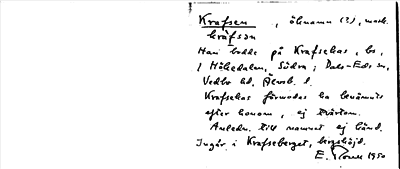 Krafsen, öknamn (?), mask.
kráfsən
Han bodde på Krafsekas, bs,
i Håbedalen, Södra; Dals-Eds sn,
Vedbo hd, Älvsb. l.
Krafsekas förmodas ha benämnts
efter honom, ej tvärtom.
Anledn. till namnet ej känd.
Ingår i Krafseberget, bergshöjd.
E. 1950